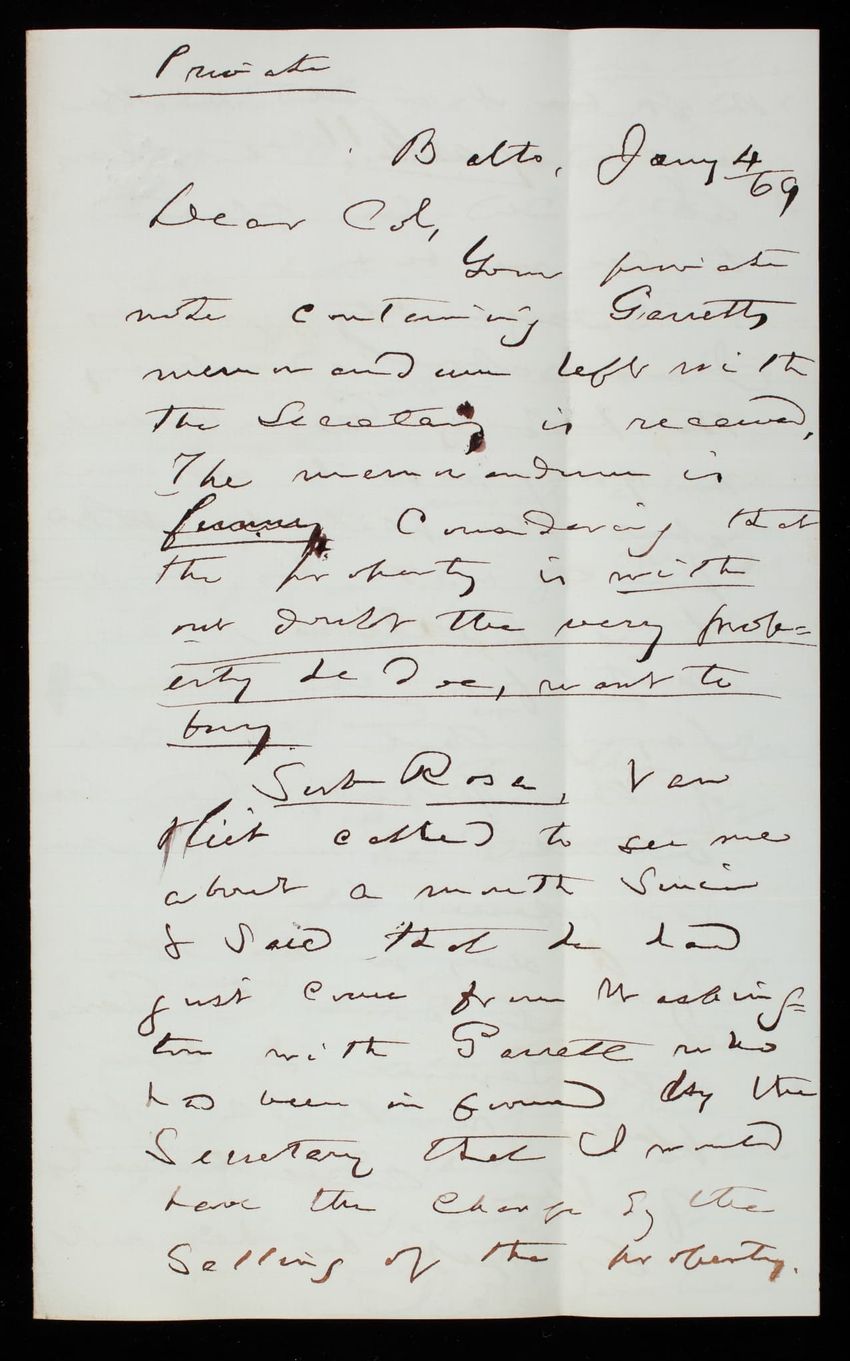 Private
Balto, Jany 4/69
Dear Col,
Your private
note containing Garretts
memorandum left with
the Secretary is received,
The memorandum is
funny Considering that
the property is with
out doubt the very prop=
erty he does, want to
buy.
Sub Rosa, Van
Vliet called to see me
about a month Since
& Said that he had
just come from Washing=
ton with Garrett who
had been informed by the
Secretary that I would
have the charge of the
Selling of the property.